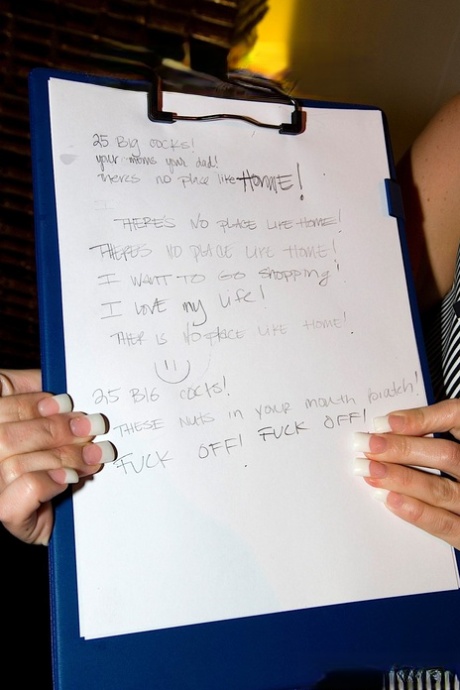 25 Big cocks!
your moms your dad!
Theres no place like Home!
THERE'S NO PLACE LIKE HOME!
THERE'S NO PLACE LIKE HOME!
I WANT TO GO shopping!
I LOVE my Life!
THER IS NO PLACE LIKE HOME!
25 BIG COCKS!
THESE NUTS IN your mouth Biatch!
FUCK OFF! FUCK OFF!